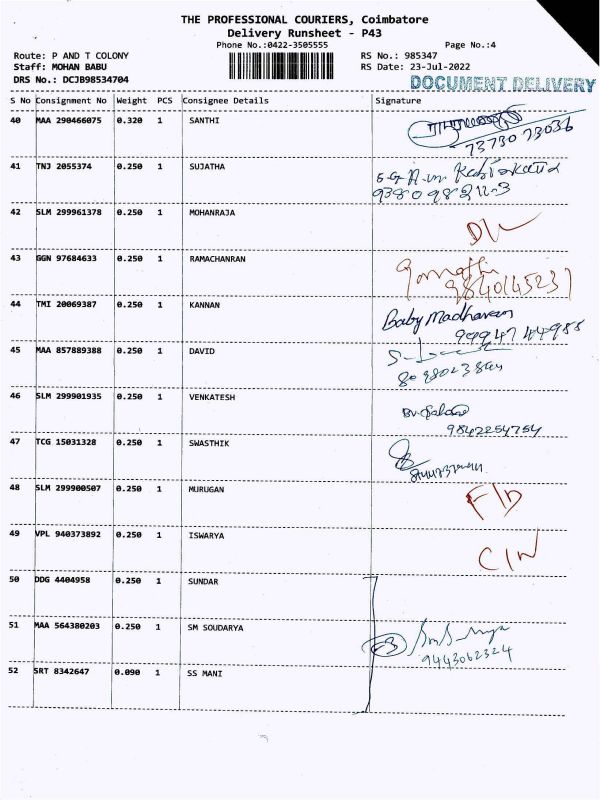 THE PROFESSIONAL COURIERS, Coimbatore
Delivery Runsheet - P43
Phone No.:0422-3505555
Page No.:4
Route: P AND T COLONY
RS No.: 985347
Staff: MOHAN BABU
RS Date: 23-Jul-2022
DRS No.: DCJB98534704
DOCUMENT DELIVERY
S No Consignment No Weight PCS Consignee Details Signature
40 MAA 290466075 0.320 1 SANTHI
73730 73036
41 TNJ 2055374 0.250 1 SUJATHA
42 SLM 299961378 0.250 1 MOHANRAJA
D/L
43 GGN 97684633 0.250 1 RAMACHANRAN
Gomathi
9840145237
44 TMI 20069387 0.250 1 KANNAN
Baby Madhavan
9994744988
45 MAA 857889388 0.250 1 DAVID
46 SLM 299901935 0.250 1 VENKATESH
9842254754
47 TCG 15031328 0.250 1 SWASTHIK
48 SLM 299900507 0.250 1 MURUGAN
F/D
49 VPL 940373892 0.250 1 ISWARYA
C/N
50 DDG 4404958 0.250 1 SUNDAR
51 MAA 564380203 0.250 1 SM SOUDARYA
9443062324
52 SRT 8342647 0.090 1 SS MANI